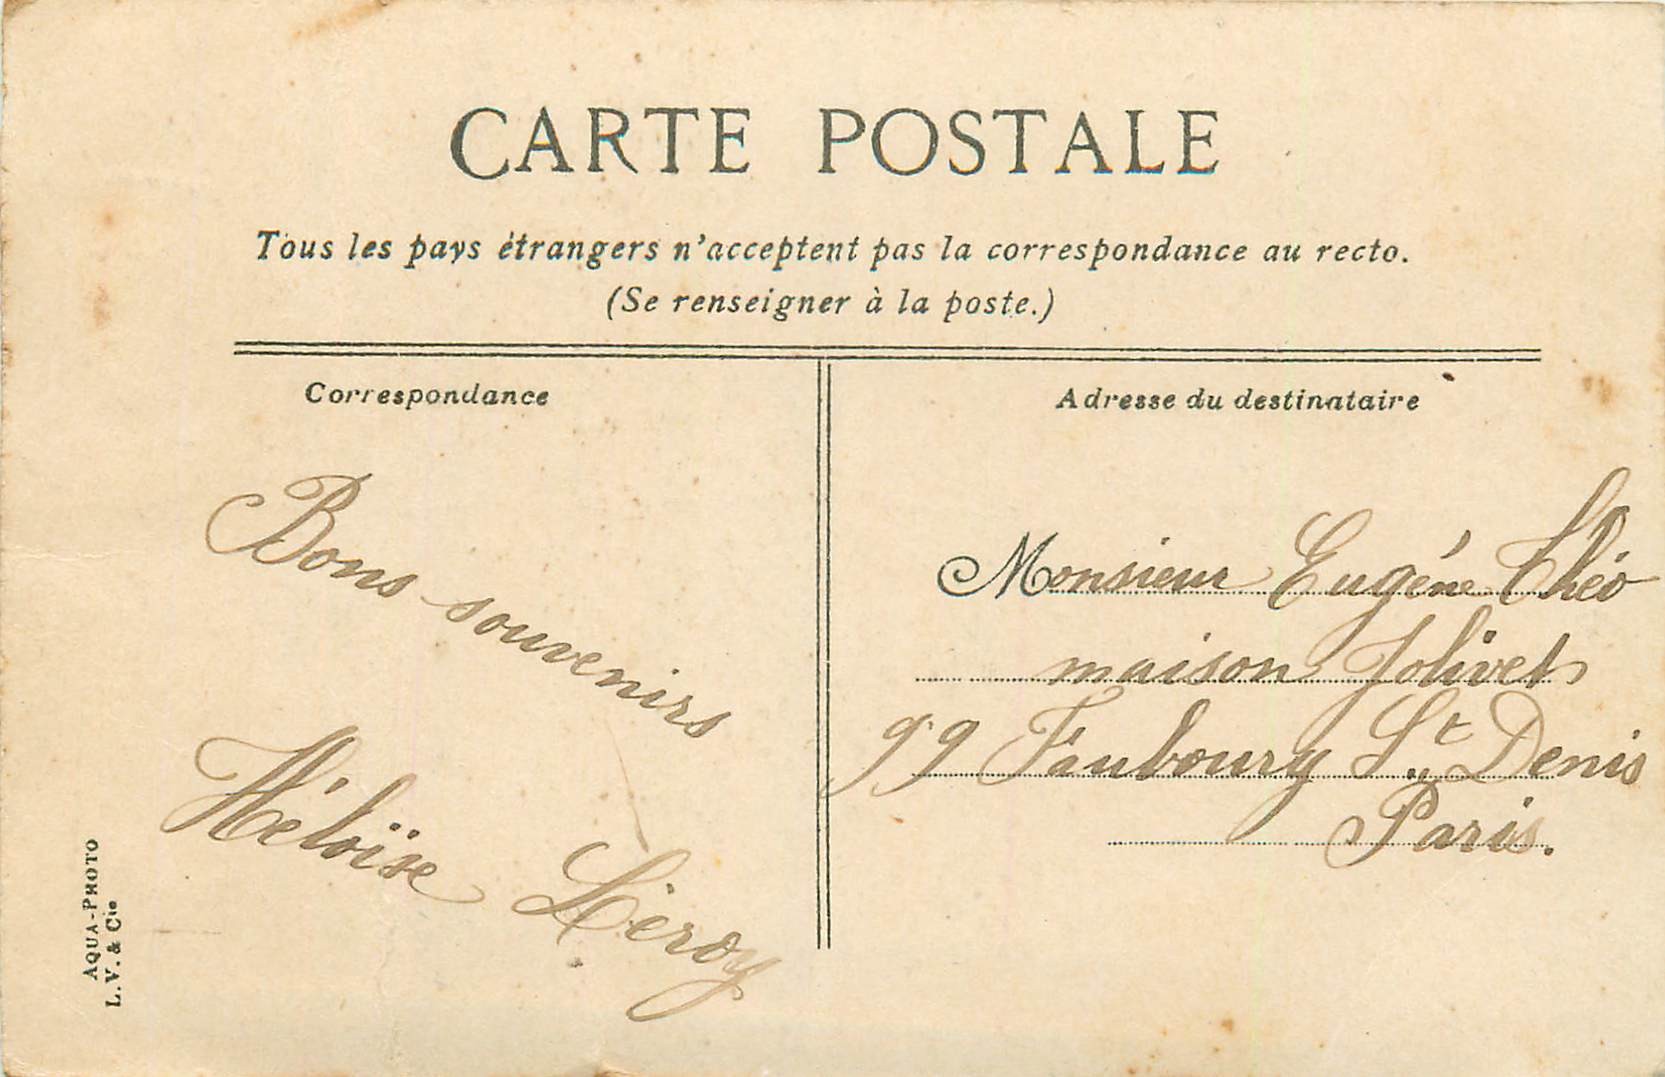 CARTE POSTALE
Tous les pays étrangers n'acceptent pas la correspondance au recto.
(Se renseigner à la poste.)
Correspondance
Bons souvenirs
Héloïse Leroy
Adresse du destinataire
Monsieur Eugéne Théo
maison Jolivet
99 Faubourg St Denis
Paris.
AQUA-PHOTO
L. V. & Cie